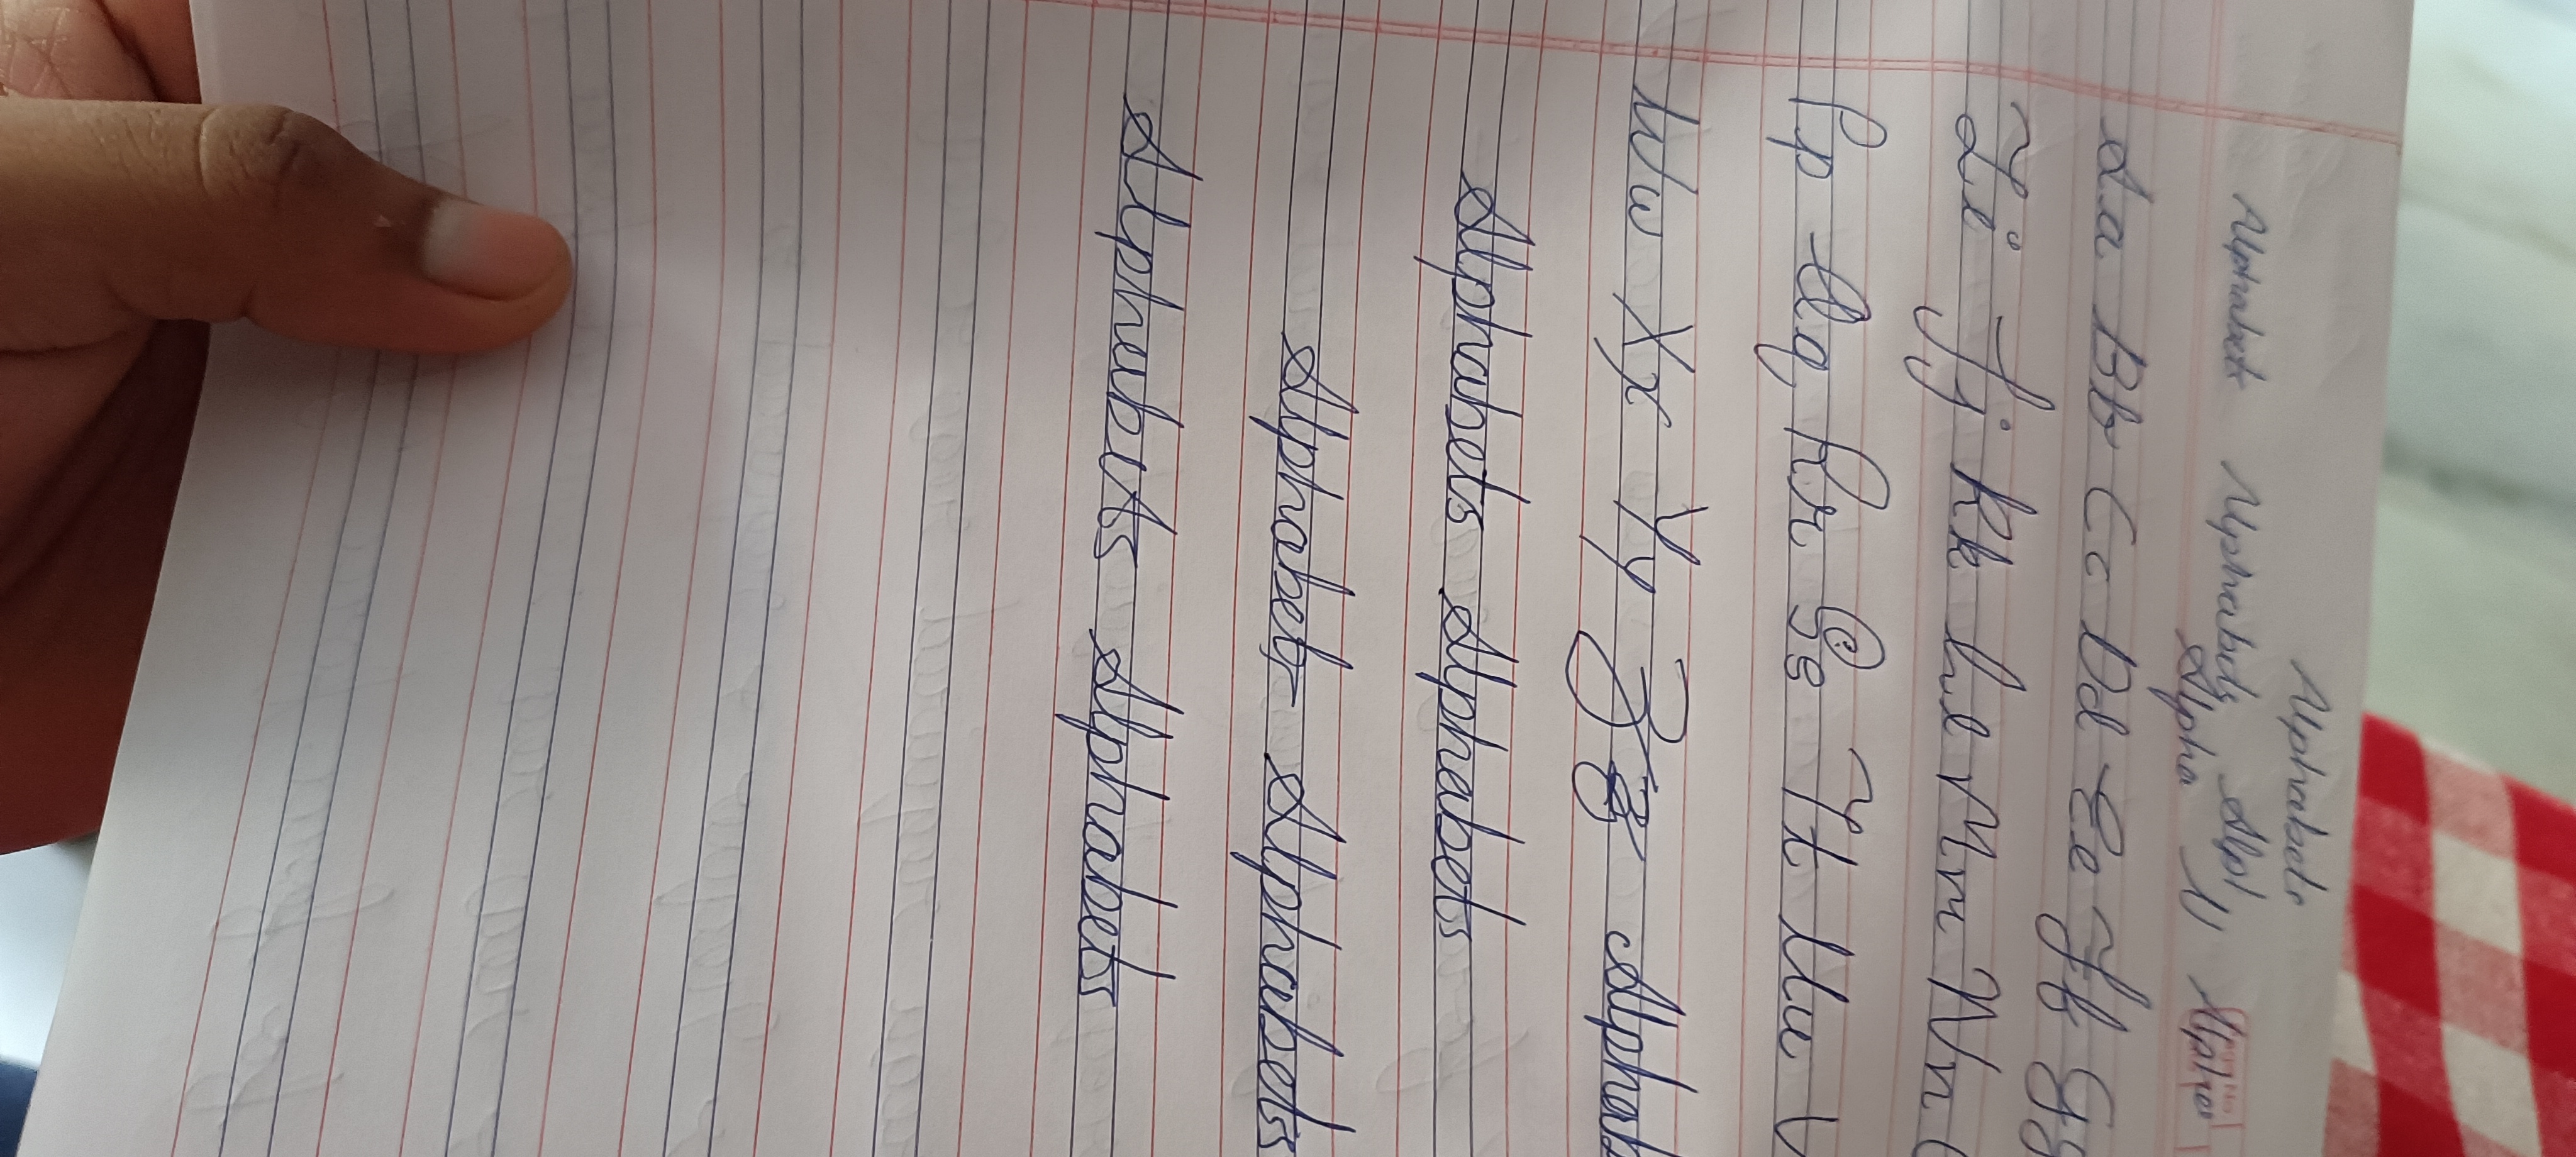 Alphabets
Alphabets Alphabets Alph
Alpha Alpha
Aa Bb Cc Dd Ee Ff Gg
Ii Jj Kk Ll Mm Nn
Pp Qq Rr Ss Tt Uu V
Ww Xx Yy Zz Alphab
Alphabets Alphabets
Alphabets Alphabets
Alphabets Alphabets